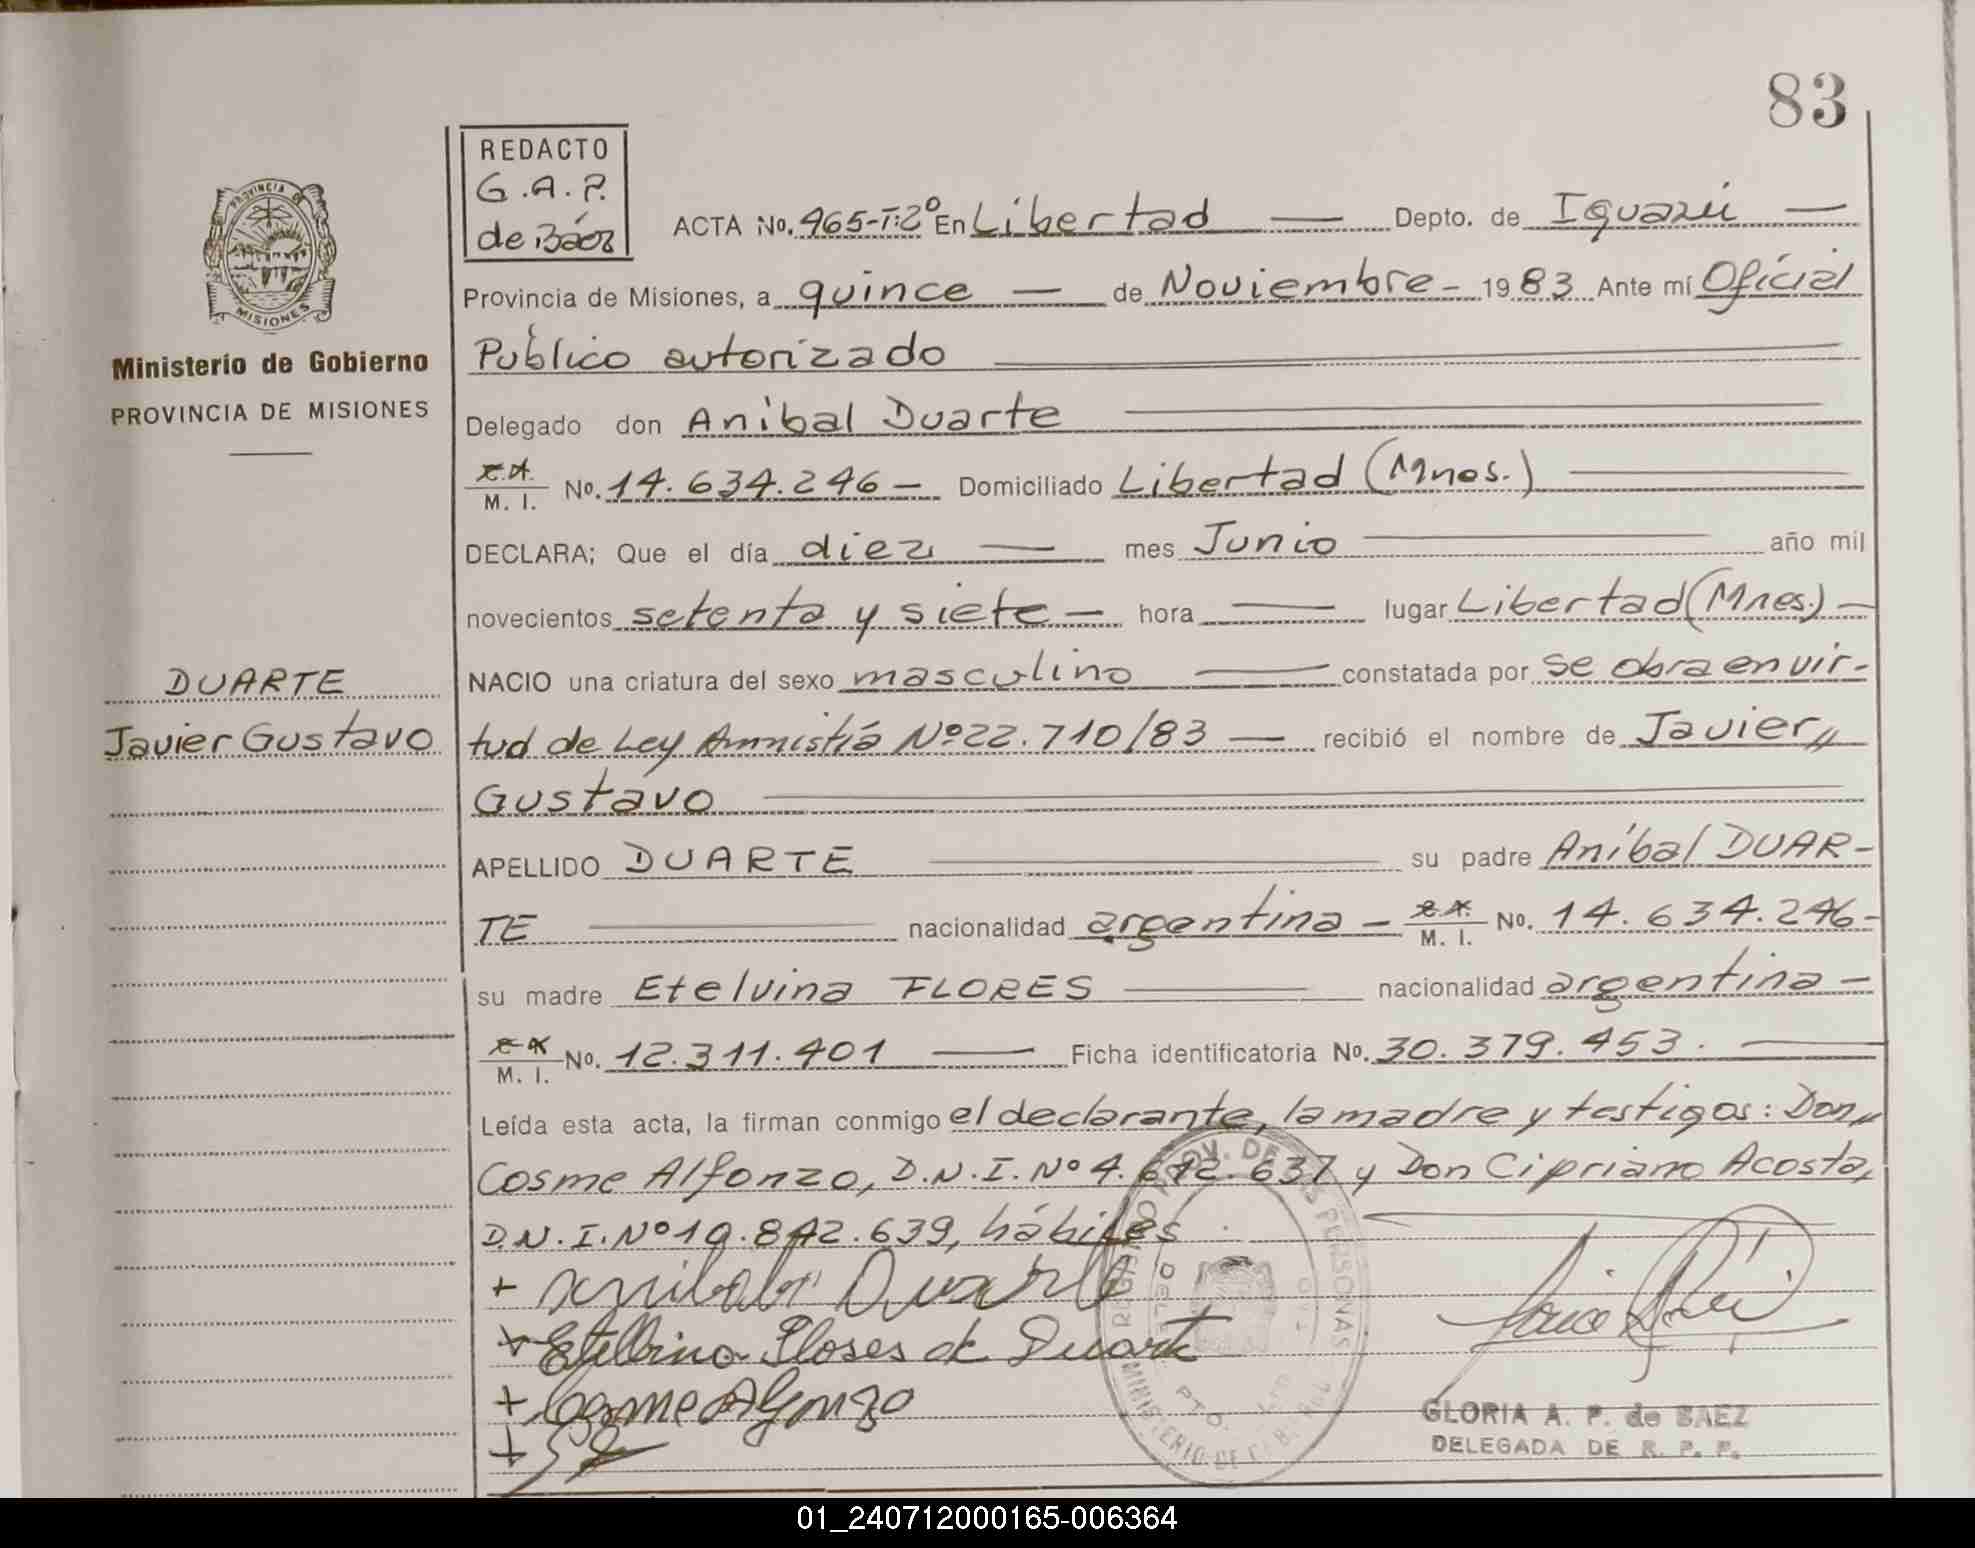 83
REDACTO
G.A.P.
de Báez
ACTA No. 465-T:2º En Libertad — Depto. de Iguazú —
Provincia de Misiones, a quince — de Noviembre - 1983 Ante mí Oficial
Público autorizado
Delegado don Aníbal Duarte
M. I. No. 14.634.246 - Domiciliado Libertad (Mnes.)
DECLARA; Que el día diez — mes Junio año mil
novecientos setenta y siete — hora — lugar Libertad (Mnes.) —
NACIO una criatura del sexo masculino — constatada por se obra en vir-
tud de Ley Amnistía Nº 22.710/83 — recibió el nombre de Javier,,
Gustavo
APELLIDO DUARTE su padre Aníbal DUAR-
TE nacionalidad argentina - M. I. No. 14.634.246-
su madre Etelvina FLORES nacionalidad argentina -
M. I. No. 12.311.401 — Ficha identificatoria No. 30.379.453.
Leída esta acta, la firman conmigo el declarante, la madre y testigos: Don,,
Cosme Alfonzo, D.N.I. Nº 4.612.637 y Don Cipriano Acosta,
D.N.I. Nº 10.842.639, hábiles
+ Anibal Duarte
+ Etelbina Flores de Duarte
+ Cosme Alfonzo
PROVINCIA DE
MISIONES
Ministerio de Gobierno
PROVINCIA DE MISIONES
DUARTE
Javier Gustavo
REGISTRO PROV. DE LAS PERSONAS
MINISTERIO DE
GLORIA A. P. de BAEZ
DELEGADA DE R. P. P.
01_240712000165-006364